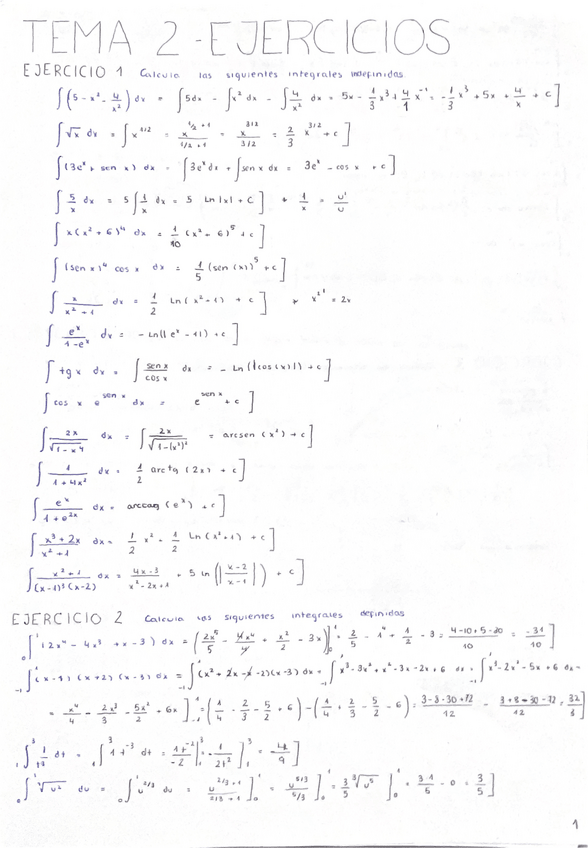 TEMA 2 - EJERCICIOS
EJERCICIO 1 Calcula las siguientes integrales indefinidas
∫(5 - x² - 4/x²) dx = ∫5dx - ∫x² dx - ∫4/x² dx = 5x - 1/3 x³ + 4/1 x⁻¹ = -1/3 x³ + 5x + 4/x + c]
∫√x dx = ∫x^(1/2) = x^(1/2 + 1)/(1/2 + 1) = x^(3/2)/(3/2) = 2/3 x^(3/2) + c]
∫(3eˣ + sen x) dx = ∫3eˣ dx + ∫sen x dx = 3eˣ - cos x + c]
∫5/x dx = 5∫1/x dx = 5 Ln|x| + C] * 1/x = u'/u
∫x(x² + 6)⁴ dx = 1/10 (x² + 6)⁵ + c]
∫(sen x)⁴ cos x dx = 1/5 (sen(x))⁵ + c]
∫x/(x² + 1) dx = 1/2 Ln(x² + 1) + c] * = 2x
∫eˣ/(1 - eˣ) dx = - Ln(|eˣ - 1|) + c]
∫tg x dx = ∫sen x/cos x dx = - Ln(|cos(x)|) + c]
∫cos x e^(sen x) dx = e^(sen x) + c]
∫2x/√(1 - x⁴) dx = ∫2x/√(1 - (x²)²) = arcsen(x²) + c]
∫1/(1 + 4x²) dx = 1/2 arctg(2x) + c]
∫eˣ/(1 + e^(2x)) dx = (eˣ) + c]
∫(x³ + 2x)/(x² + 1) dx = 1/2 x² + 1/2 Ln(x² + 1) + c]
∫(x² + 1)/((x - 1)³(x - 2)) dx = (4x - 3)/(x² - 2x + 1) + 5 ln(|(x - 2)/(x - 1)|) + c]
EJERCICIO 2 Calcula las siguientes integrales definidas
₀∫¹(2x⁴ - 4x³ + x - 3) dx = (2x⁵/5 - 4x⁴/4 + x²/2 - 3x)]₀¹ = 2/5 - 1⁴ + 1/2 - 3 = (4 - 10 + 5 - 30)/10 = -31/10]
₋₁∫¹(x - 1)(x + 2)(x - 3) dx = ∫(x² + 2x - x - 2)(x - 3) dx = ₋₁∫¹ x³ - 3x² + x² - 3x - 2x + 6 dx = ₋₁∫¹ x³ - 2x² - 5x + 6 dx =
= x⁴/4 - 2x³/3 - 5x²/2 + 6x]₋₁¹ = (1/4 - 2/3 - 5/2 + 6) - (1/4 + 2/3 - 5/2 - 6) = (3 - 8 - 30 + 72)/12 - (3 + 8 - 30 - 72)/12 = 32/3]
₁∫³ 1/t³ dt = ₁∫³ 1t⁻³ dt = 1t⁻²/-2 |₁³ = -1/2t² ]₁³ = 4/9]
₀∫¹ ∛u² du = ₀∫¹ u^(2/3) du = u^(2/3 + 1)/(2/3 + 1)]₀¹ = u^(5/3)/(5/3)]₀¹ = 3/5 ∛u⁵]₀¹ = 3·1/5 - 0 = 3/5]
1